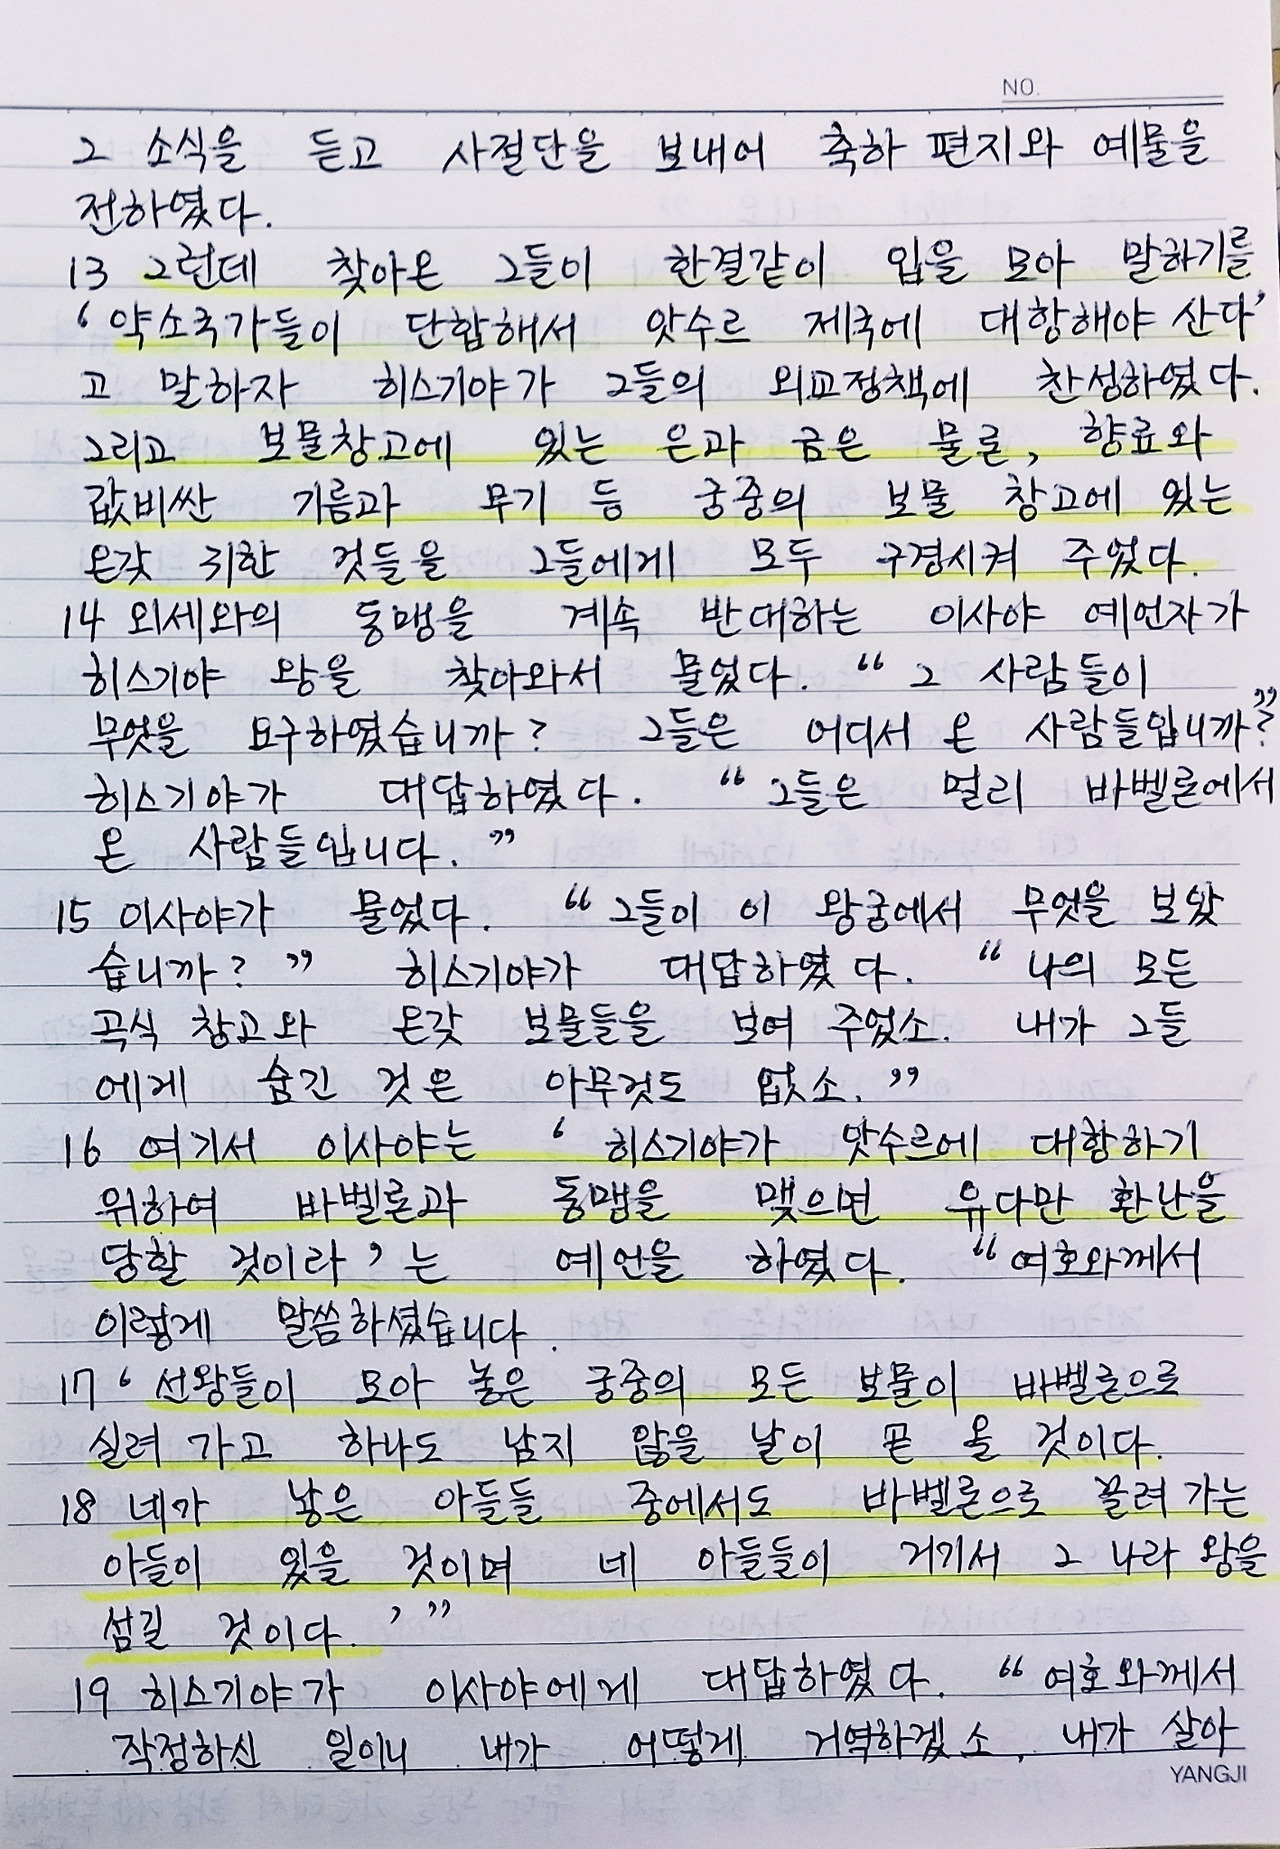 NO.
그 소식을 듣고 사절단을 보내어 축하 편지와 예물을
전하였다.
13 그런데 찾아온 그들이 한결같이 입을 모아 말하기를
'약소국가들이 단합해서 앗수르 제국에 대항해야 산다'
고 말하자 히스기야가 그들의 외교정책에 찬성하였다.
그리고 보물창고에 있는 은과 금은 물론, 향료와
값비싼 기름과 무기 등 궁중의 보물 창고에 있는
온갖 귀한 것들을 그들에게 모두 구경시켜 주었다.
14 외세와의 동맹을 계속 반대하는 이사야 예언자가
히스기야 왕을 찾아와서 물었다. "그 사람들이
무엇을 요구하였습니까? 그들은 어디서 온 사람들입니까?"
히스기야가 대답하였다. "그들은 멀리 바벨론에서
온 사람들입니다."
15 이사야가 물었다. "그들이 이 왕궁에서 무엇을 보았
습니까?" 히스기야가 대답하였다. "나의 모든
곡식 창고와 온갖 보물들을 보여 주었소. 내가 그들
에게 숨긴 것은 아무것도 없소."
16 여기서 이사야는 '히스기야가 앗수르에 대항하기
위하여 바벨론과 동맹을 맺으면 유다만 환난을
당할 것이라'는 예언을 하였다. "여호와께서
이렇게 말씀하셨습니다.
17 '선왕들이 모아 놓은 궁중의 모든 보물이 바벨론으로
실려 가고 하나도 남지 않을 날이 곧 올 것이다.
18 네가 낳은 아들들 중에서도 바벨론으로 끌려 가는
아들이 있을 것이며 네 아들들이 거기서 그 나라 왕을
섬길 것이다.'"
19 히스기야가 이사야에게 대답하였다. "여호와께서
작정하신 일이니 내가 어떻게 거역하겠소. 내가 살아
YANGJI